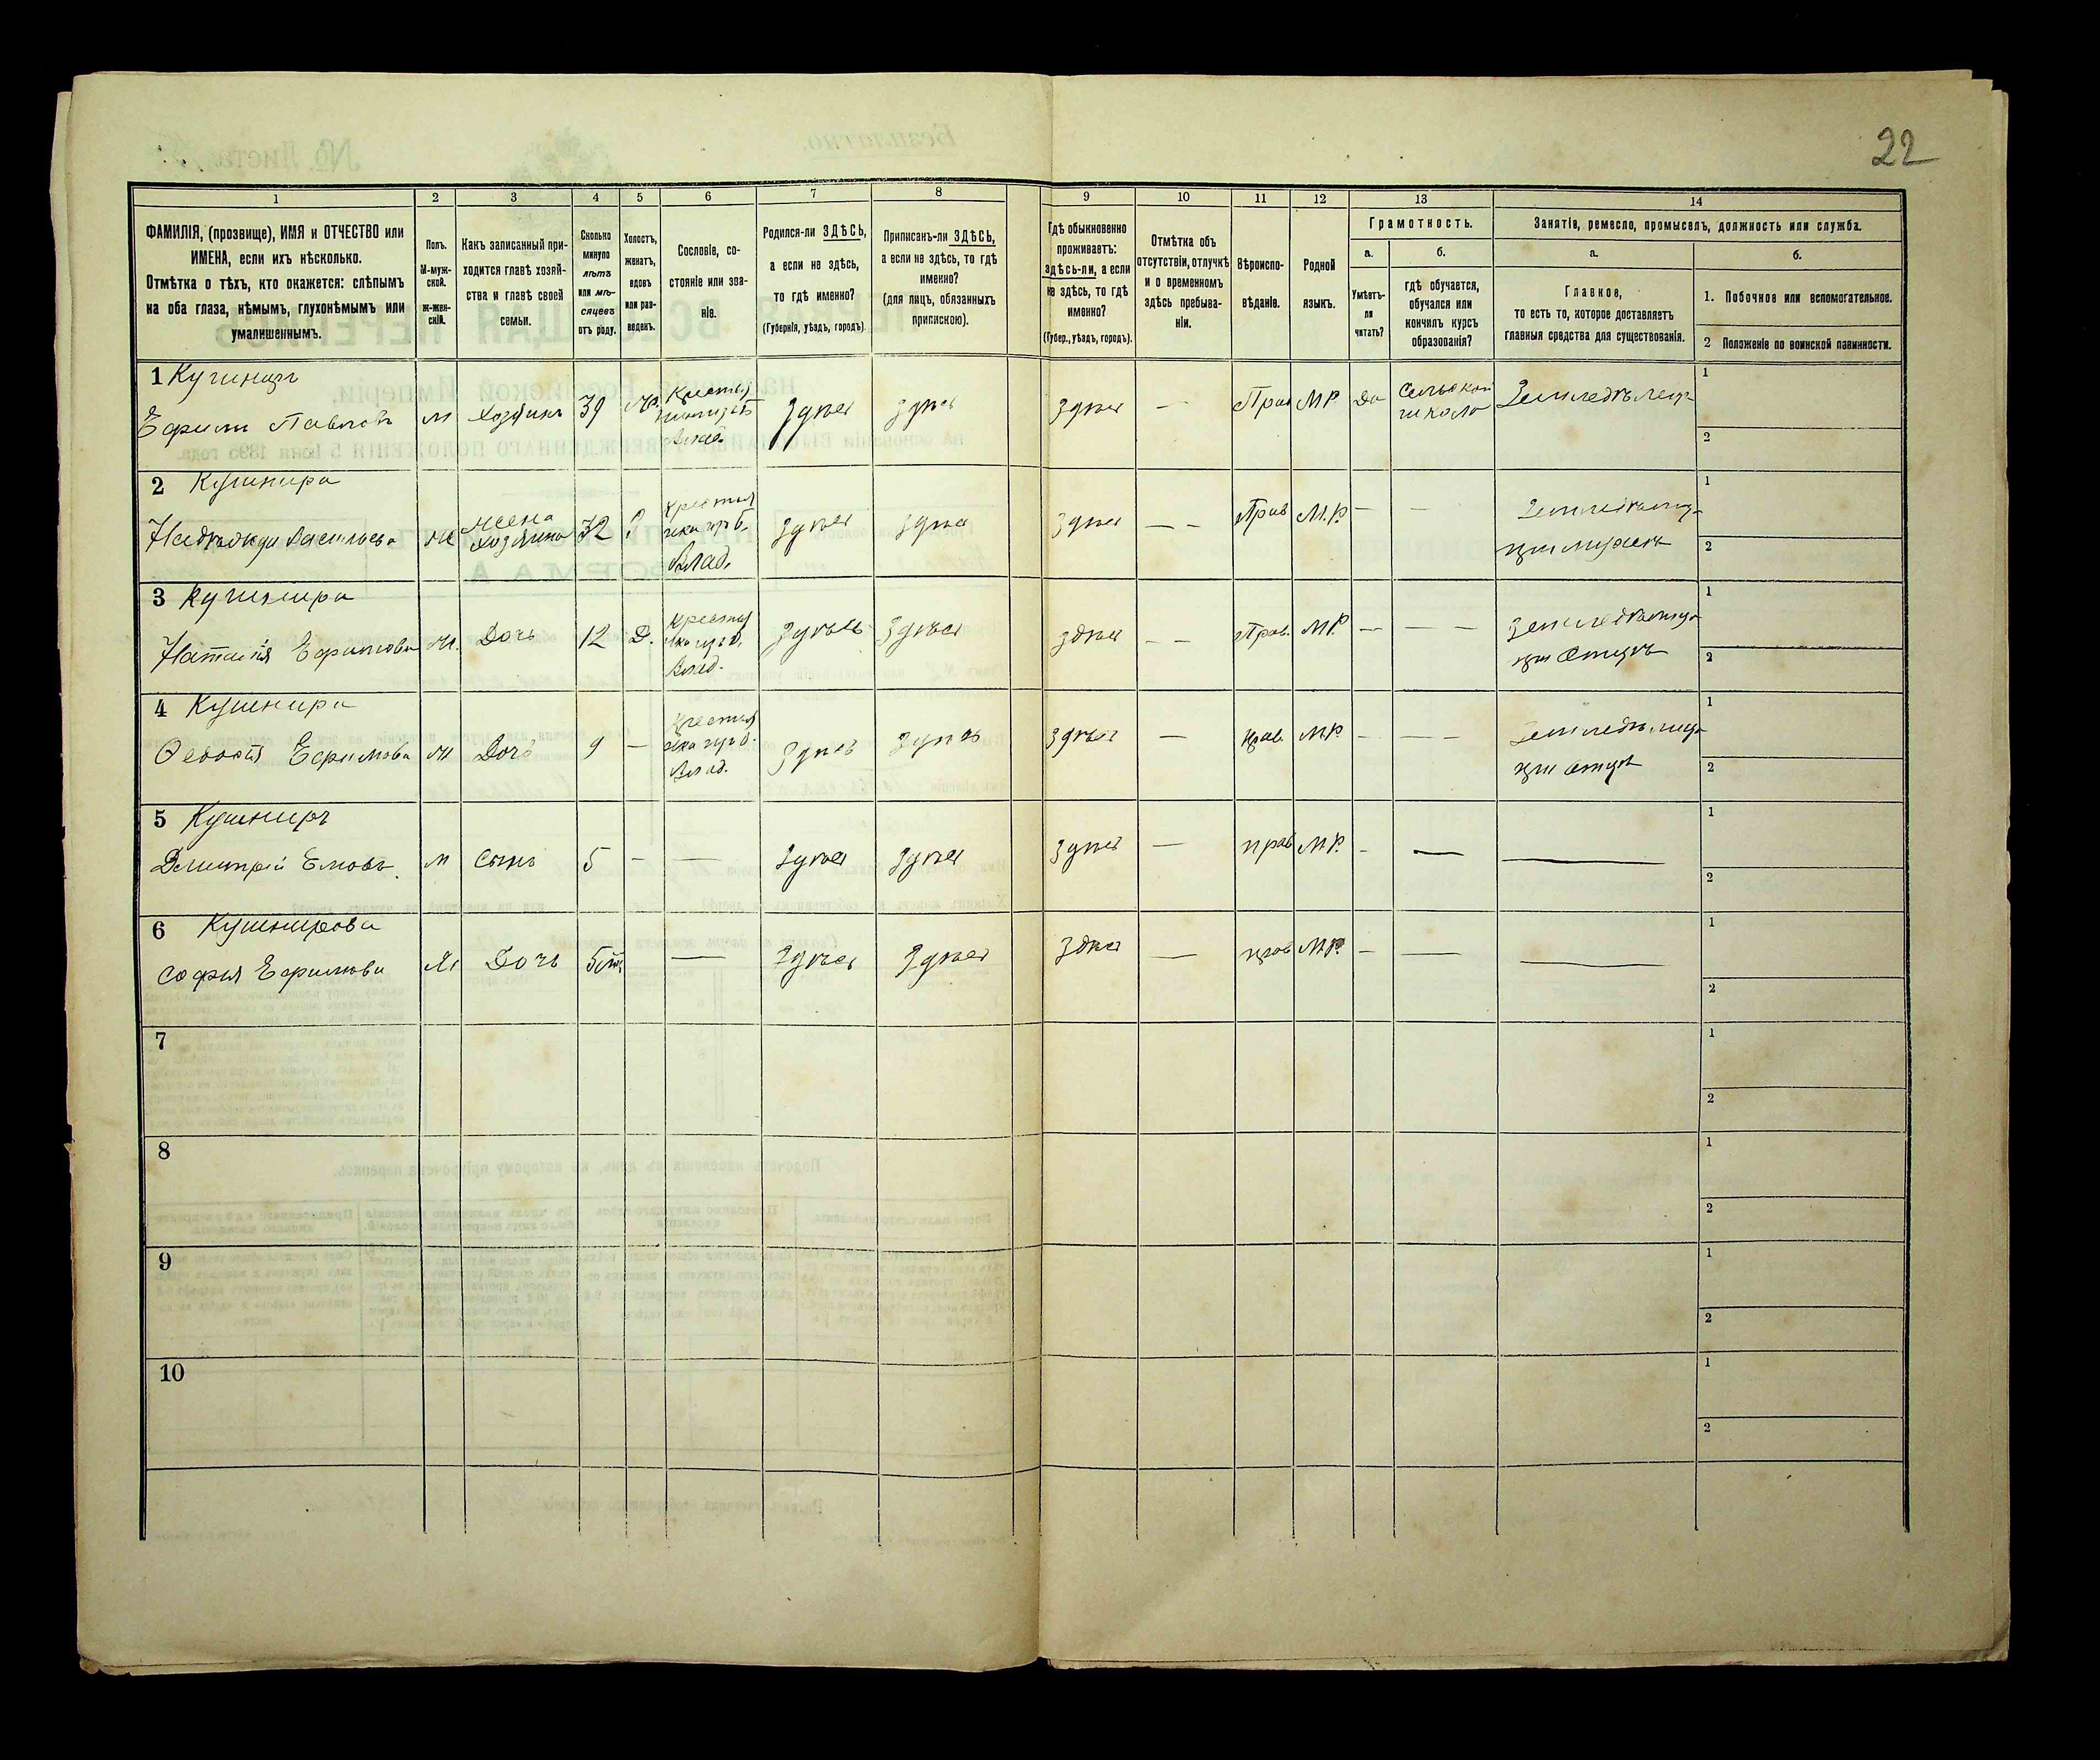 22
1 2 3 4 5 6 7 8 9 10 11 12 13 14
ФАМИЛІЯ, (прозвище), ИМЯ и ОТЧЕСТВО или
ИМЕНА, если ихъ нѣсколько.
Отмѣтка о тѣхъ, кто окажется: слѣпымъ
на оба глаза, нѣмымъ, глухонѣмымъ или
умалишеннымъ.
Полъ.
М-муж-
ской.
ж-жен-
скій.
Какъ записанный при-
ходится главѣ хозяй-
ства и главѣ своей
семьи.
Сколько
минуло
лѣтъ
или мѣ-
сяцевъ
отъ роду.
Холостъ,
женатъ,
вдовъ
или раз-
веденъ.
Сословіе, со-
стояніе или зва-
ніе.
Родился-ли ЗДѢСЬ,
а если не здѣсь,
то гдѣ именно?
(Губернія, уѣздъ, городъ).
Приписанъ-ли ЗДѢСЬ,
а если не здѣсь, то гдѣ
именно?
(для лицъ, обязанныхъ
припискою).
Гдѣ обыкновенно
проживаетъ:
здѣсь-ли, а если
не здѣсь, то гдѣ
именно?
(Губер., уѣздъ, городъ).
Отмѣтка объ
отсутствіи, отлучкѣ
и о временномъ
здѣсь пребыва-
ніи.
Вѣроиспо-
вѣданіе.
Родной
языкъ.
Грамотность.
а.
Умѣетъ-
ли
читать?
б.
гдѣ обучается,
обучался или
кончилъ курсъ
образованія?
Занятіе, ремесло, промыселъ, должность или служба.
а.
Главное,
то есть то, которое доставляетъ
главныя средства для существованія.
б.
1. Побочное или вспомогательное.
2 Положеніе по воинской повинности.
1 Кушниръ
Ефимъ Павловъ м Хозяинъ 39 Здѣсь Здѣсь Здѣсь — Прав МР Да
Сельской
школѣ
Земледѣлецъ
1
2
2 Кушнира
Надѣжда Васильева ж
жена
хозяина
32
Крестья
нка изъ б.
Влад.
Здѣсь Здѣсь Здѣсь — — Прав М.Р. — —
при мужѣ
1
2
3 Кушнира
Наталія Ефимова ж. Дочь 12 Д.
Крестья
нка изъ б.
Влад.
Здѣсь Здѣсь Здѣсь — — Прав. МР. — — —
при Отцѣ
1
2
4 Кушнира
Ефимова ж Дочь 9 —
Крестья
нка изъ б.
Влад.
Здѣсь Здѣсь Здѣсь — прав. М.Р. — — —
при отцѣ
1
2
5 Кушниръ
Дмитрій Емовъ. м Сынъ 5 — — Здѣсь Здѣсь Здѣсь — прав М.Р. — — —
1
2
6 Кушнирова
Софья Ефимова ж Дочь Здѣсь Здѣсь Здѣсь — прав М.Р. — — —
1
2
7
1
2
8
1
2
9
1
2
10
1
2